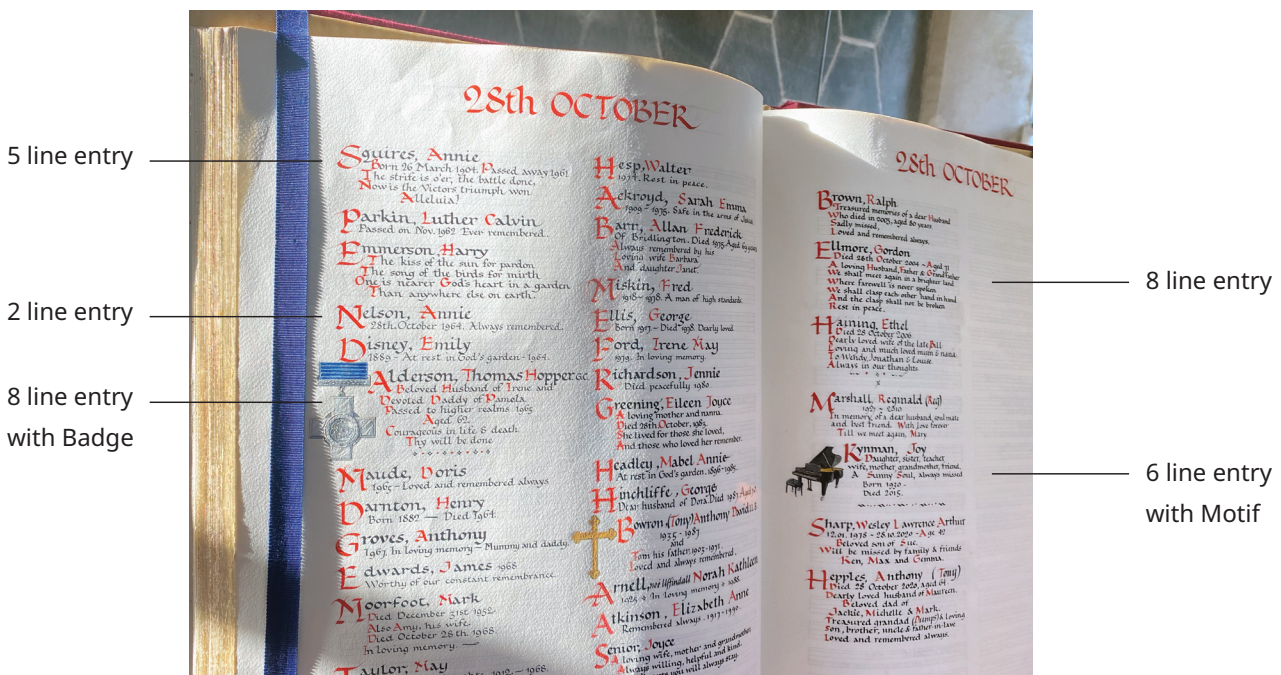 5 line entry
2 line entry
8 line entry
with Badge
28th OCTOBER
Squires, Annie
Born 26 March 1904. Passed away 1961
The strife is o'er, the battle done,
Now is the Victors triumph won
Alleluia!
Parkin, Luther Calvin
Passed on Nov. 1962 Ever remembered.
Emmerson, Harry
The kiss of the sun for pardon
The song of the birds for mirth
One is nearer God's heart in a garden
Than anywhere else on earth.
Nelson, Annie
28th. October 1964. Always remembered.
Disney, Emily
1889 - At rest in God's garden - 1964.
Alderson, Thomas Hopper GC
Beloved Husband of Irene and
Devoted Daddy of Pamela
Passed to higher realms 1965
Aged 62.
Courageous in life & death
Thy will be done
Maude, Doris
1965 - Loved and remembered always
Darnton, Henry
Born 1882 — Died 1964.
Groves, Anthony
1967. In loving memory - Mummy and daddy.
Edwards, James 1968
Worthy of our constant remembrance.
Moorfoot, Mark
Died December 31st 1952.
Also Amy, his wife
Died October 28th. 1968.
In loving memory. —
Taylor, May
1912 - 1968.
Hesp, Walter
1974. Rest in peace.
Ackroyd, Sarah Emma
1909 - 1975. Safe in the arms of Jesus.
Barr, Allan Frederick
Of Bridlington. Died 1975. Aged 69 years
Always remembered by his
Loving wife Barbara
And daughter Janet.
Miskin, Fred
1918 - 1978. A man of high standards.
Ellis, George
Born 1917 - Died 1978. Dearly loved.
Ford, Irene May
1979. In loving memory.
Richardson, Jennie
Died peacefully 1980.
Greening, Eileen Joyce
A loving mother and nanna.
Died 28th October, 1983.
She lived for those she loved,
And those who loved her remember.
Headley, Mabel Annie
At rest in God's garden. 1896-1985.
Hinchliffe, George
Dear husband of Dora. Died 1987 Aged
Bowron (Tony) Anthony David
1935 - 1987
and
Tom his father. 1903-1971.
Loved and always remembered.
Arnell, née Norah Kathleen
In loving memory 1988.
Atkinson, Elizabeth Anne
Remembered always. 1917-1990.
Senior, Joyce
A loving wife, mother and grandmother
Always willing, helpful and kind.
you will always stay.
28th OCTOBER
Brown, Ralph
Treasured memories of a dear Husband
Who died in 2003, aged 80 years
Sadly missed,
Loved and remembered always.
Ellmore, Gordon
Died 28th October 2004 - Aged 71
A loving Husband, Father & Grandfather
We shall meet again in a brighter land
Where farewell is never spoken
We shall clasp each other hand in hand
And the clasp shall not be broken
Rest in peace.
Haining, Ethel
Died 28 October 2006
Dearly loved wife of the late Bill
Loving and much loved mum & nana
To Wendy, Jonathan & Louise.
Always in our thoughts.
Marshall Reginald (Reg)
1927 - 2010
In memory of a dear husband, soul mate
and best friend. With love forever
Till we meet again, Mary
Kynman, Joy
Daughter, sister, teacher
wife, mother, grandmother, friend,
A Sunny Soul, always missed
Born 1930 -
Died 2015.
Sharp, Wesley Lawrence Arthur
12.01.1978 - 28.10.2020 - Age 42
Beloved son of Sue.
Will be missed by family & friends
Ken, Max and Gemma.
Hepples, Anthony (Tony)
Died 28 October 2020, aged 64
Dearly loved husband of Maureen.
Beloved dad of
Jackie, Michelle & Mark.
Treasured grandad (Dumps) & loving
son, brother, uncle & father-in-law
Loved and remembered always.
8 line entry
6 line entry
with Motif